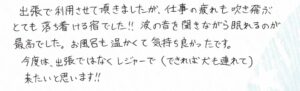 出張で利用させて頂きましたが、仕事の疲れも吹き飛ぶ
とても落ち着ける宿でした!! 波の音を聞きながら眠れるのが
最高でした。お風呂も温かくて気持ち良かったです。
今度は、出張ではなくレジャーで(できれば犬も連れて)
来たいと思います!!